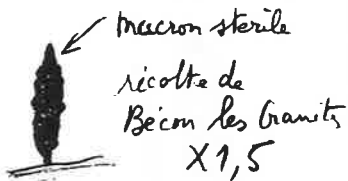 mucron stérile
récolte de
Bécon les Granits
X 1,5